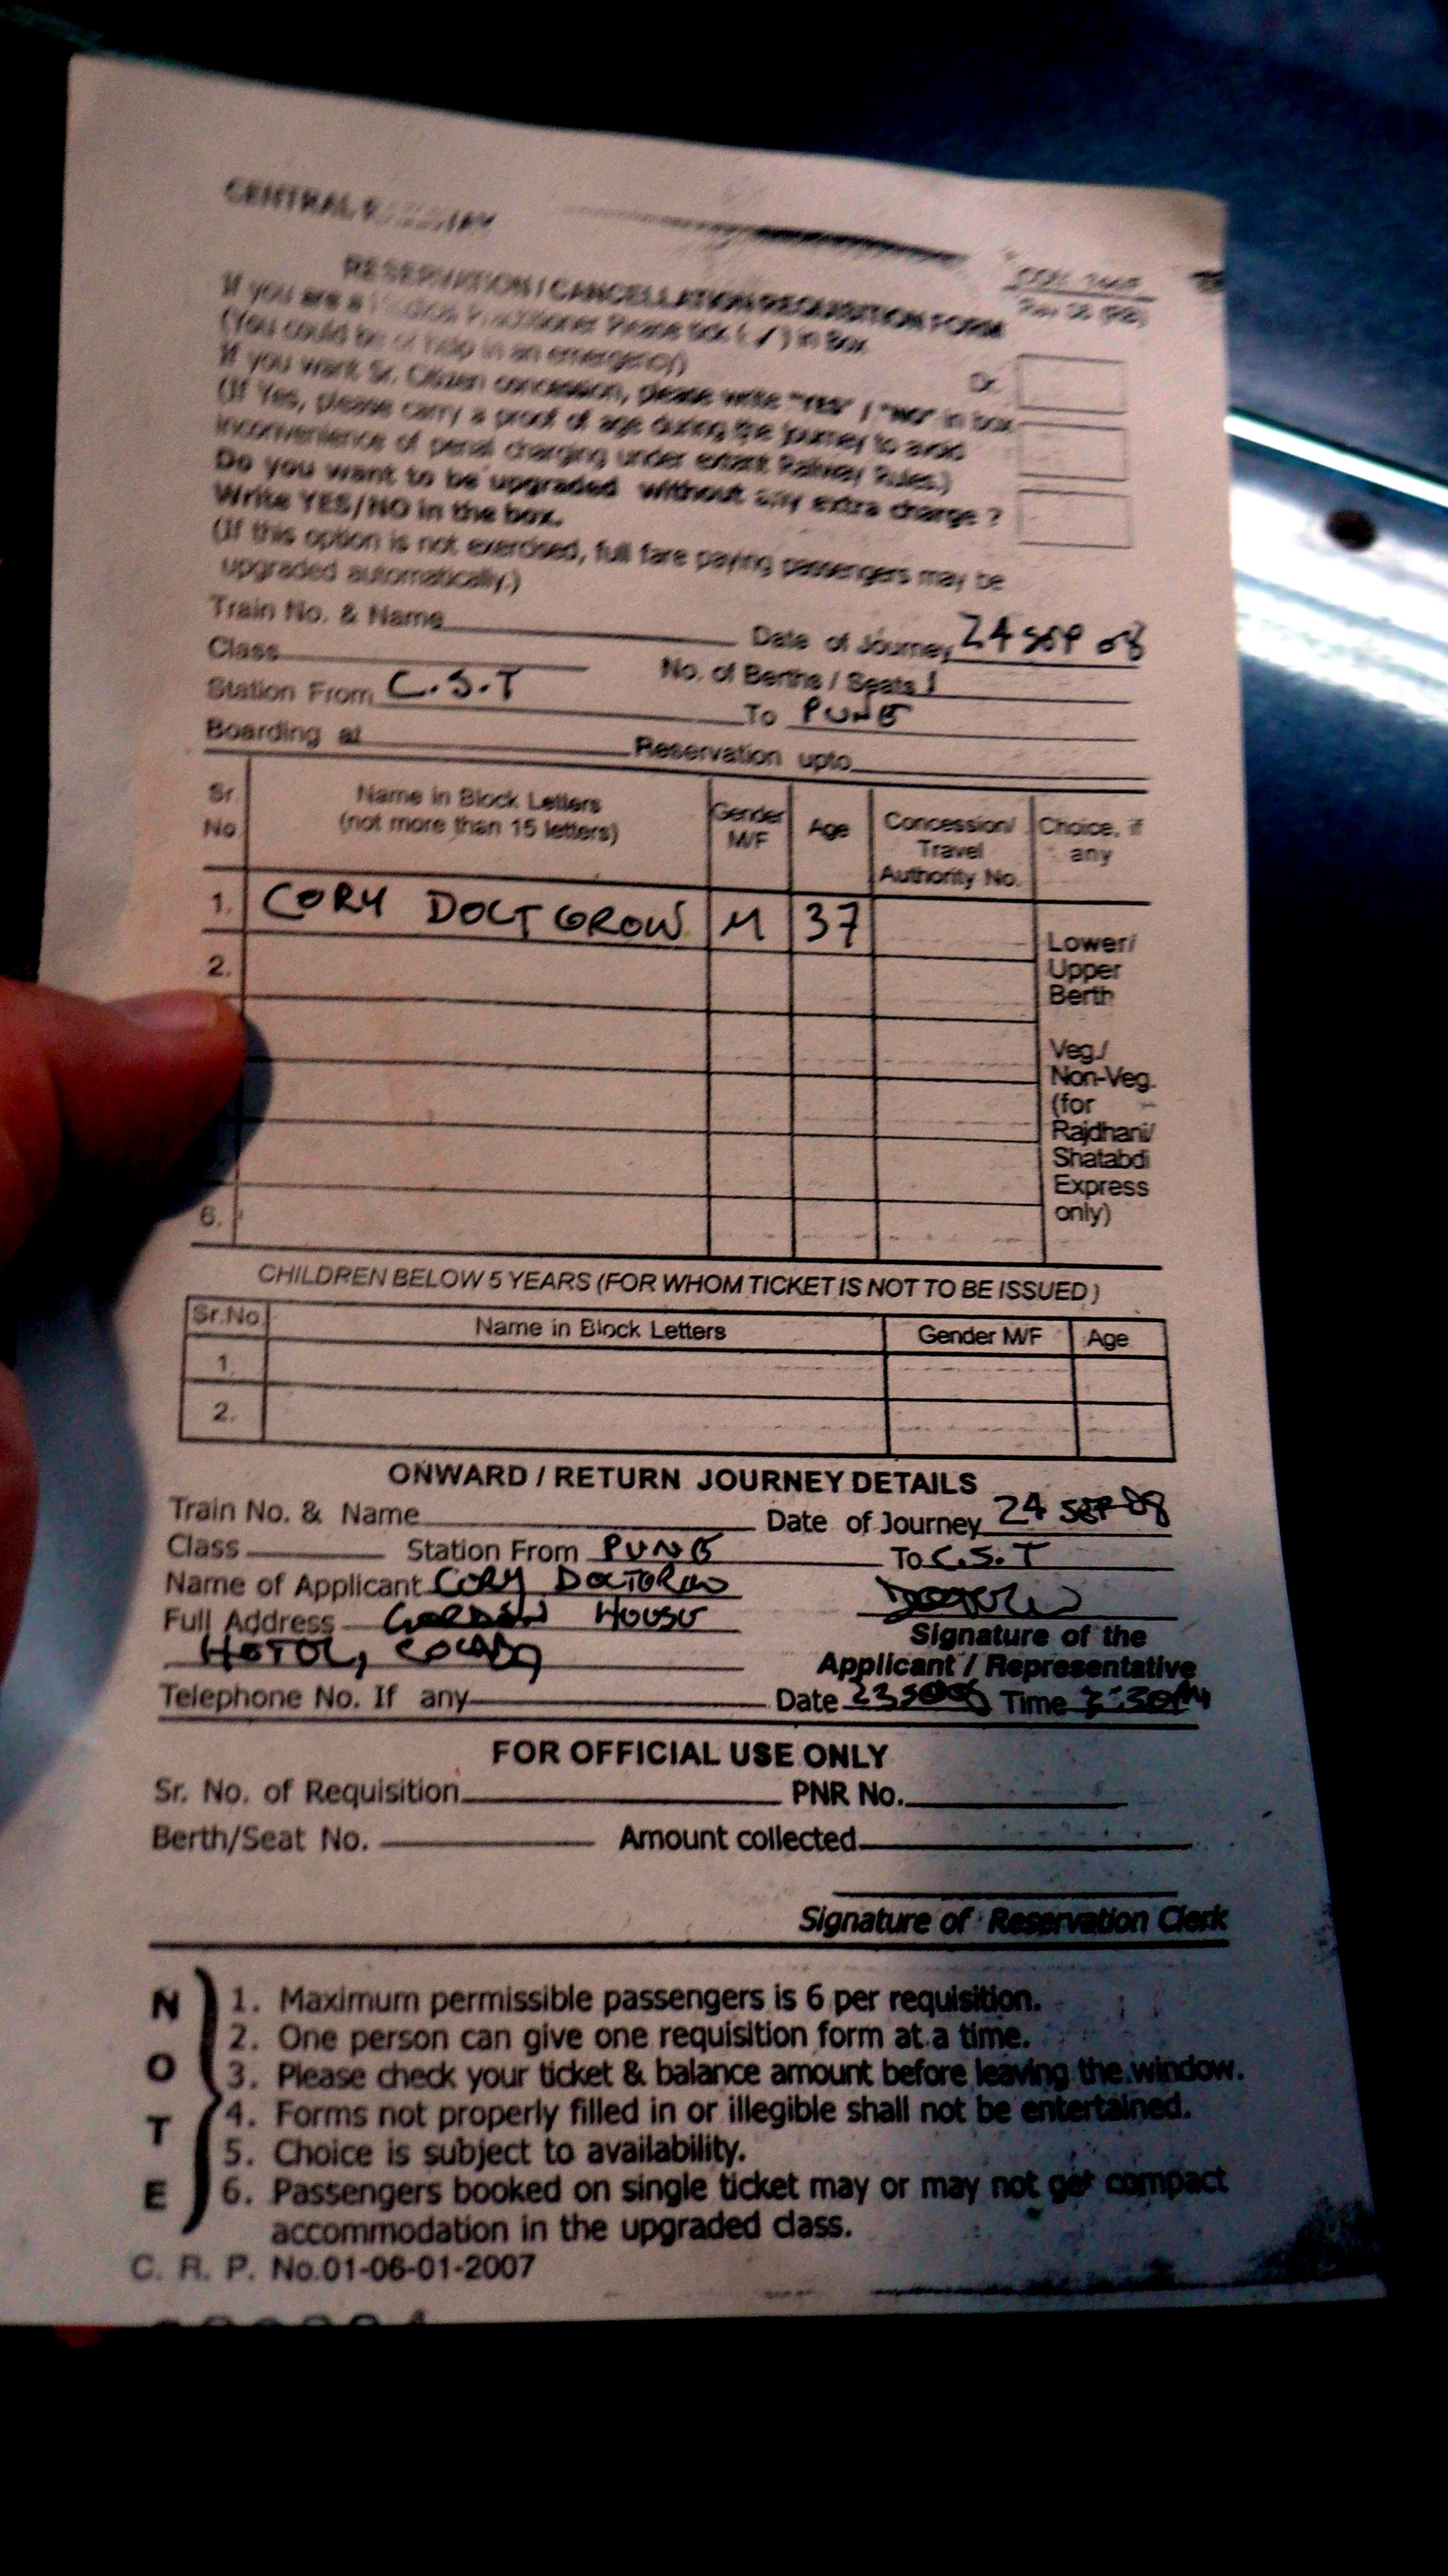 CENTRAL RAILWAY
RESERVATION / CANCELLATION REQUISITION FORM
If you are a Medical Practitioner Please tick ( ✓ ) in Box
(You could be of help in an emergency)
Dr.
If you want Sr. Citizen concession, please write "YES" / "NO" in box
(If Yes, please carry a proof of age during the journey to avoid
inconvenience of penal charging under extant Railway Rules.)
Do you want to be upgraded without any extra charge ?
Write YES/NO in the box.
(If this option is not exercised, full fare paying passengers may be
upgraded automatically.)
Train No. & Name Date of Journey 24 SEP 08
Class No. of Berths / Seats 1
Station From C.S.T To PUNE
Boarding at Reservation upto
Sr. No Name in Block Letters (not more than 15 letters) Gender M/F Age Concession/ Travel Authority No. Choice, if any
1. CORY DOCTOROW M 37
2.
6.
Lower/
Upper
Berth
Veg./
Non-Veg.
(for
Rajdhani/
Shatabdi
Express
only)
CHILDREN BELOW 5 YEARS (FOR WHOM TICKET IS NOT TO BE ISSUED )
Sr.No. Name in Block Letters Gender M/F Age
1.
2.
ONWARD / RETURN JOURNEY DETAILS
Train No. & Name Date of Journey 24 SEP 08
Class Station From PUNE To C.S.T
Name of Applicant CORY DOCTOROW
Full Address GORDON HOUSE
HOTEL, COLABA
Signature of the
Applicant / Representative
Telephone No. If any Date 23 Time
FOR OFFICIAL USE ONLY
Sr. No. of Requisition PNR No.
Berth/Seat No. Amount collected
Signature of Reservation Clerk
NOTE
1. Maximum permissible passengers is 6 per requisition.
2. One person can give one requisition form at a time.
3. Please check your ticket & balance amount before leaving the window.
4. Forms not properly filled in or illegible shall not be entertained.
5. Choice is subject to availability.
6. Passengers booked on single ticket may or may not get compact
accommodation in the upgraded class.
C. R. P. No.01-06-01-2007